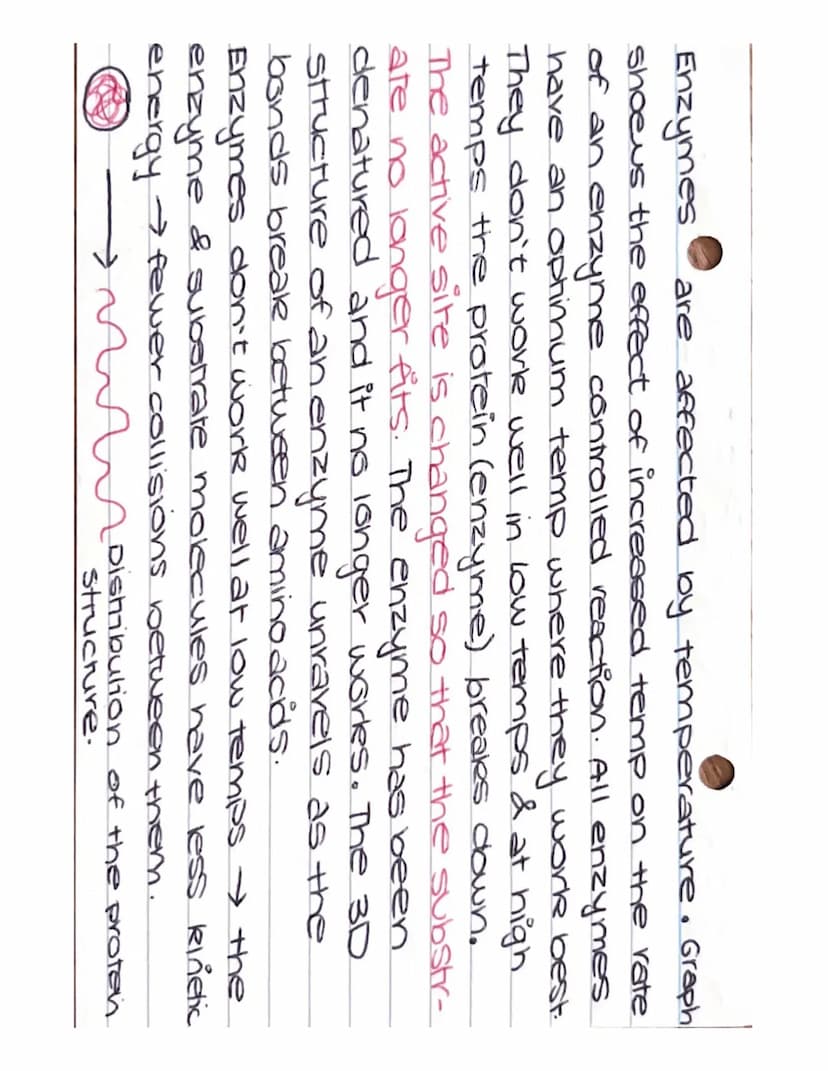 Enzymes are affected by temperature. Graph
shoews the effect of increased temp on the rate
of an enzyme controlled reaction. All enzymes
have an optimum temp where they work best.
They don't work well in low temps & at high
temps the protein (enzyme) breaks down.
The active site is changed so that the substr-
ate no longer fits. The enzyme has been
denatured and it no longer works. The 3D
structure of an enzyme unravels as the
bonds break between amino acids.
Enzymes don't work well at low temps → the
enzyme & substrate molecules have less kinetic
energy → fewer collisions between them.
→ Distribution of the protein
structure.